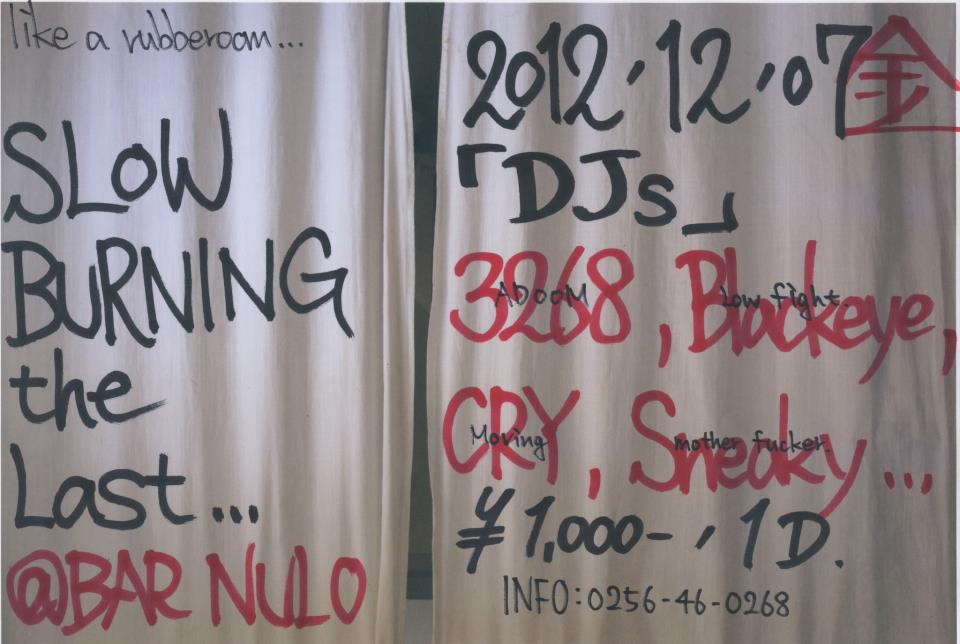 like a rubberoom...
SLOW
BURNING
the
Last...
@BAR NULO
2012.12.07 金
「DJs」
3268, Blackeye,
ADOOM Low fight.
CRY, Sneaky...
Moving mother fucker.
¥1,000-, 1D.
INFO:0256-46-0268